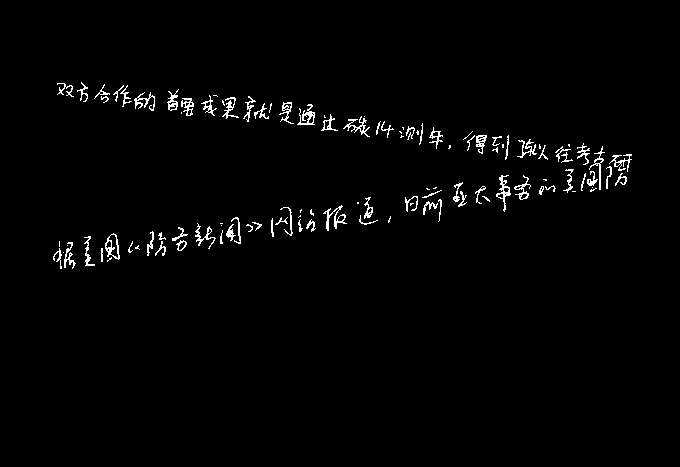 双方合作的首要成果就是通过碳14测年，得到了以往考古
据美国《防务新闻》网络报道，日前亚太事务的美国防